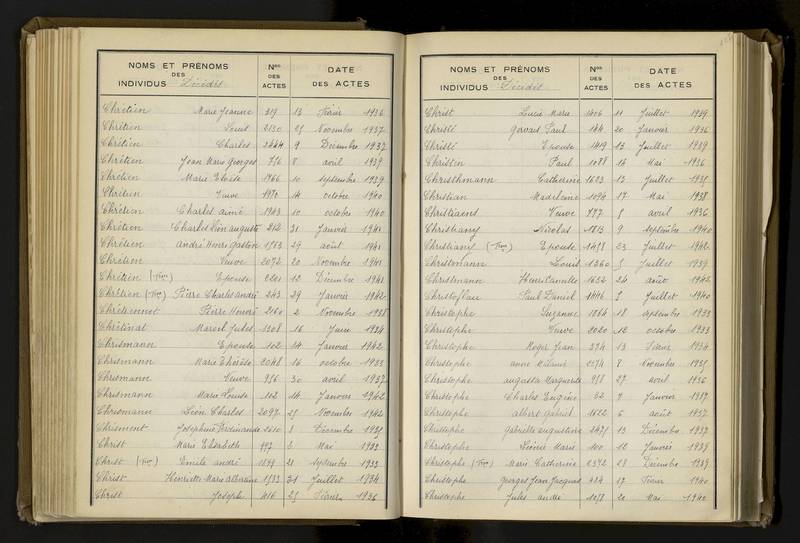 NOMS ET PRÉNOMS DES INDIVIDUS Décédés Nos DES ACTES DATE DES ACTES
Chrétien Marie Jeanne 219 13 Février 1936
Chrétien Louis 2130 25 Novembre 1937
Chrétien Charles 2444 9 Décembre 1937
Chrétien Jean Marie Georges 776 8 avril 1939
Chrétien Marie Eloïse 1766 10 septembre 1939
Chrétien Veuve 1970 14 octobre 1940
Chrétien Charles aimé 1943 10 octobre 1940
Chrétien Charles Léon auguste 212 31 Janvier 1941
Chrétien andré Henri gaston 1753 29 août 1941
Chrétien Veuve 2072 20 Novembre 1941
Chrétien Epouse 2201 12 Décembre 1941
Chrétien Pierre Charles andré 243 29 Janvier 1942
Chrétiennot Pierre Honoré 2160 2 Novembre 1938
Chrétinat Marcel Jules 1308 16 Juin 1934
Chrismann Epouse 102 14 Janvier 1942
Chrismann Marie Thérèse 2048 16 octobre 1933
Chrismann Veuve 956 30 avril 1937
Chrismann Marie Louise 102 14 Janvier 1942
Chrismann Léon Charles 2097 25 Novembre 1942
Chrisment Joséphine Ferdinande 2610 8 Décembre 1935
Christ Marie Elisabeth 997 2 Mai 1933
Christ Emile andré 1849 21 septembre 1933
Christ Henriette Marie albertine 1533 31 Juillet 1934
Christ Joseph 416 25 Février 1936
NOMS ET PRÉNOMS DES INDIVIDUS Décédés Nos DES ACTES DATE DES ACTES
Christ Lucie Marie 1406 11 Juillet 1939
Christé Gervais Paul 144 20 Janvier 1936
Christé Epouse 1419 13 Juillet 1939
Christen Paul 1088 14 Mai 1936
Christhmann Catherine 1603 13 Juillet 1935
Christian Madeleine 1096 17 Mai 1938
Christiaens Veuve 777 8 avril 1936
Christiany Nicolas 1813 9 septembre 1940
Christiany Epouse 1458 23 Juillet 1942
Christmann Louis 1360 5 Juillet 1939
Christmann Henri Camille 1652 24 août 1942
Christoflau Paul Daniel 1446 5 Juillet 1940
Christophe Suzanne 1864 18 septembre 1933
Christophe Veuve 2020 12 octobre 1933
Christophe Roger Jean 394 13 Février 1934
Christophe anne Mélanie 2374 8 Novembre 1935
Christophe augusta Marguerite 958 27 avril 1936
Christophe Charles Eugène 62 7 Janvier 1937
Christophe albert gabriel 1622 6 août 1937
Christophe gabrielle augustine 2475 13 Décembre 1937
Christophe Marie 100 12 Janvier 1939
Christophe Marie Catherine 2372 18 Décembre 1939
Christophe georges Jean Jacques 424 17 Février 1940
Christophe Jules andré 1058 20 Mai 1940